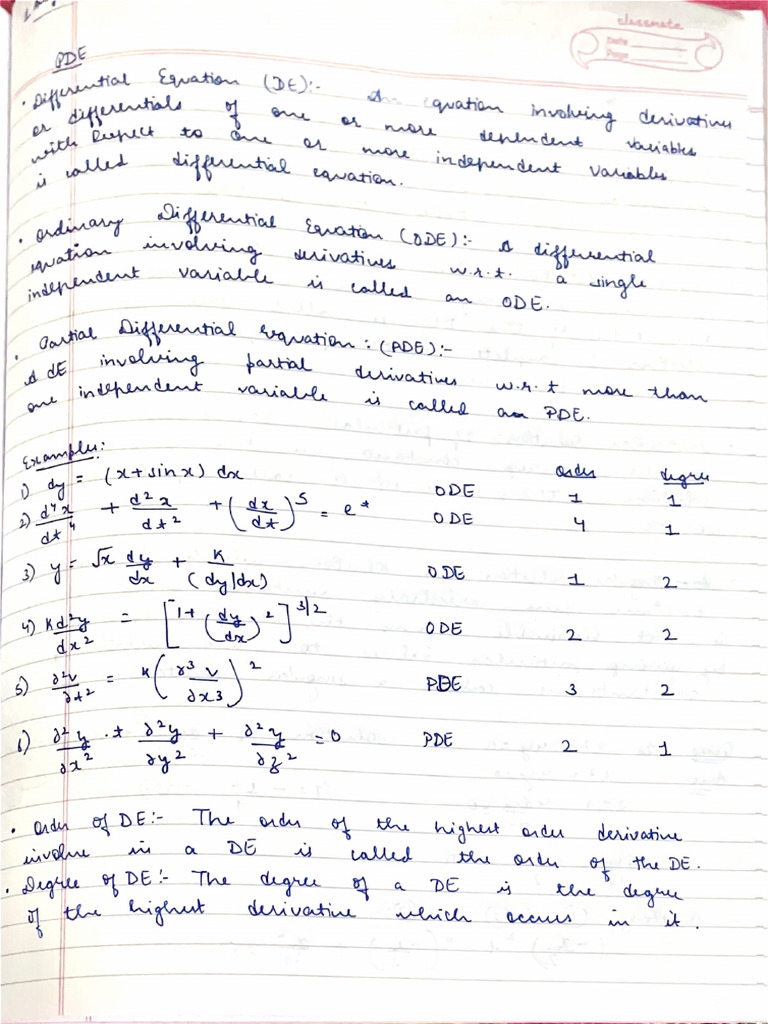 classmate
Date
Page
PDE
• Differential Equation (DE):- An equation involving derivatives
or differentials of one or more dependent variables
with Respect to one or more independent variables
is called differential equation.
• Ordinary Differential Equation (ODE):- A differential
equation involving derivatives w.r.t. a single
independent variable is called an ODE.
• Partial Differential Equation: (PDE):-
A dE involving partial derivatives w.r.t more than
one independent variable is called an PDE.
Examples: order degree
1) dy = (x+sinx) dx ODE 1 1
2) d⁴x/dt⁴ + d²x/dt² + (dx/dt)⁵ = eᵗ ODE 4 1
3) y = √x dy/dx + K/(dy/dx) ODE 1 2
4) K d²y/dx² = [1+(dy/dx)²]^3/2 ODE 2 2
5) ∂²v/∂t² = k(∂³v/∂x3)² PDE 3 2
6) ∂²y/∂x² + ∂²y/∂y² + ∂²y/∂z² = 0 PDE 2 1
• Order of DE:- The order of the highest order derivative
involve in a DE is called the order of the DE.
• Degree of DE:- The degree of a DE is the degree
of the highest derivative which occurs in it.